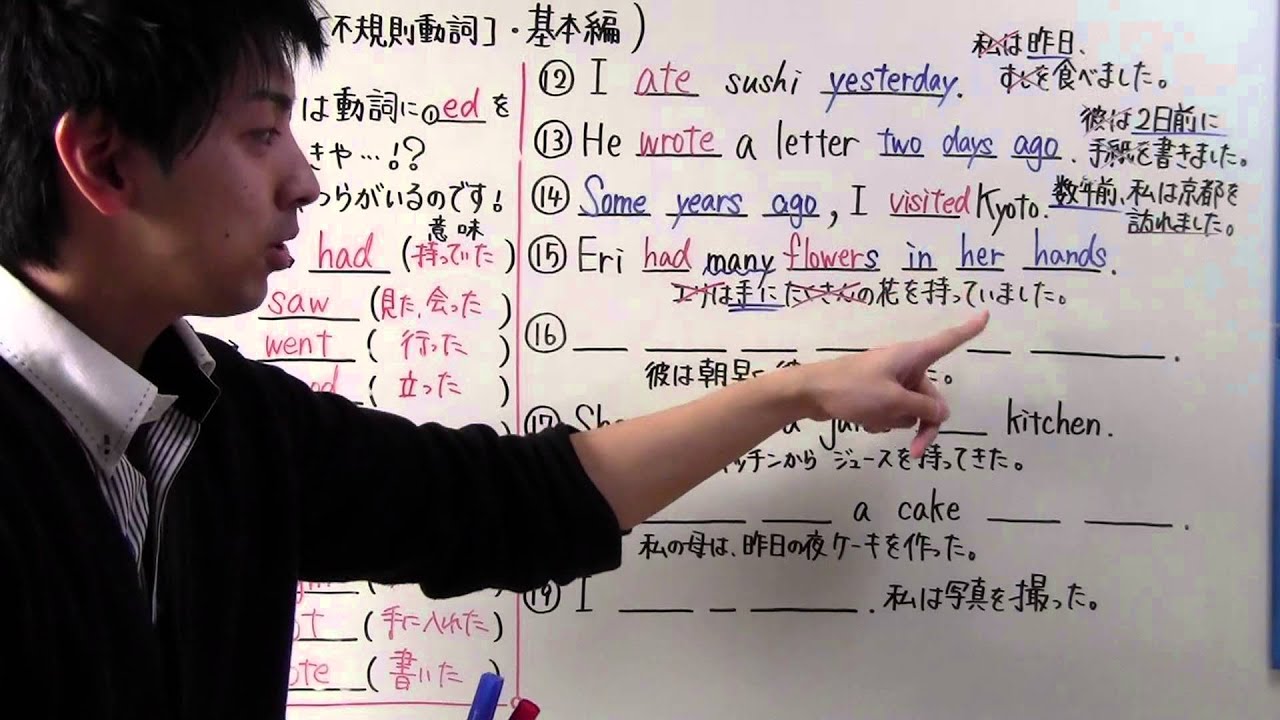 [不規則動詞]・基本編)
は動詞に①edを
きや…!?
つらがいるのです!
意味
had (持っていた)
saw (見た、会った
went ( 行った )
( 立った )
(手に入れた)
( 書いた )
⑫ I ate sushi yesterday.
私は昨日、
すしを食べました。
⑬ He wrote a letter two days ago.
彼は2日前に
手紙を書きました。
⑭ Some years ago, I visited Kyoto.
数年前、私は京都を
訪れました。
⑮ Eri had many flowers in her hands.
エリは手にたくさんの花を持っていました。
⑯ __ __ __ __ __ __.
彼は朝早く
た。
⑰ She
a
kitchen.
ッチンから ジュースを持ってきた。
__ __ a cake __ __.
私の母は、昨日の夜ケーキを作った。
⑲ I __ _ __. 私は写真を撮った。